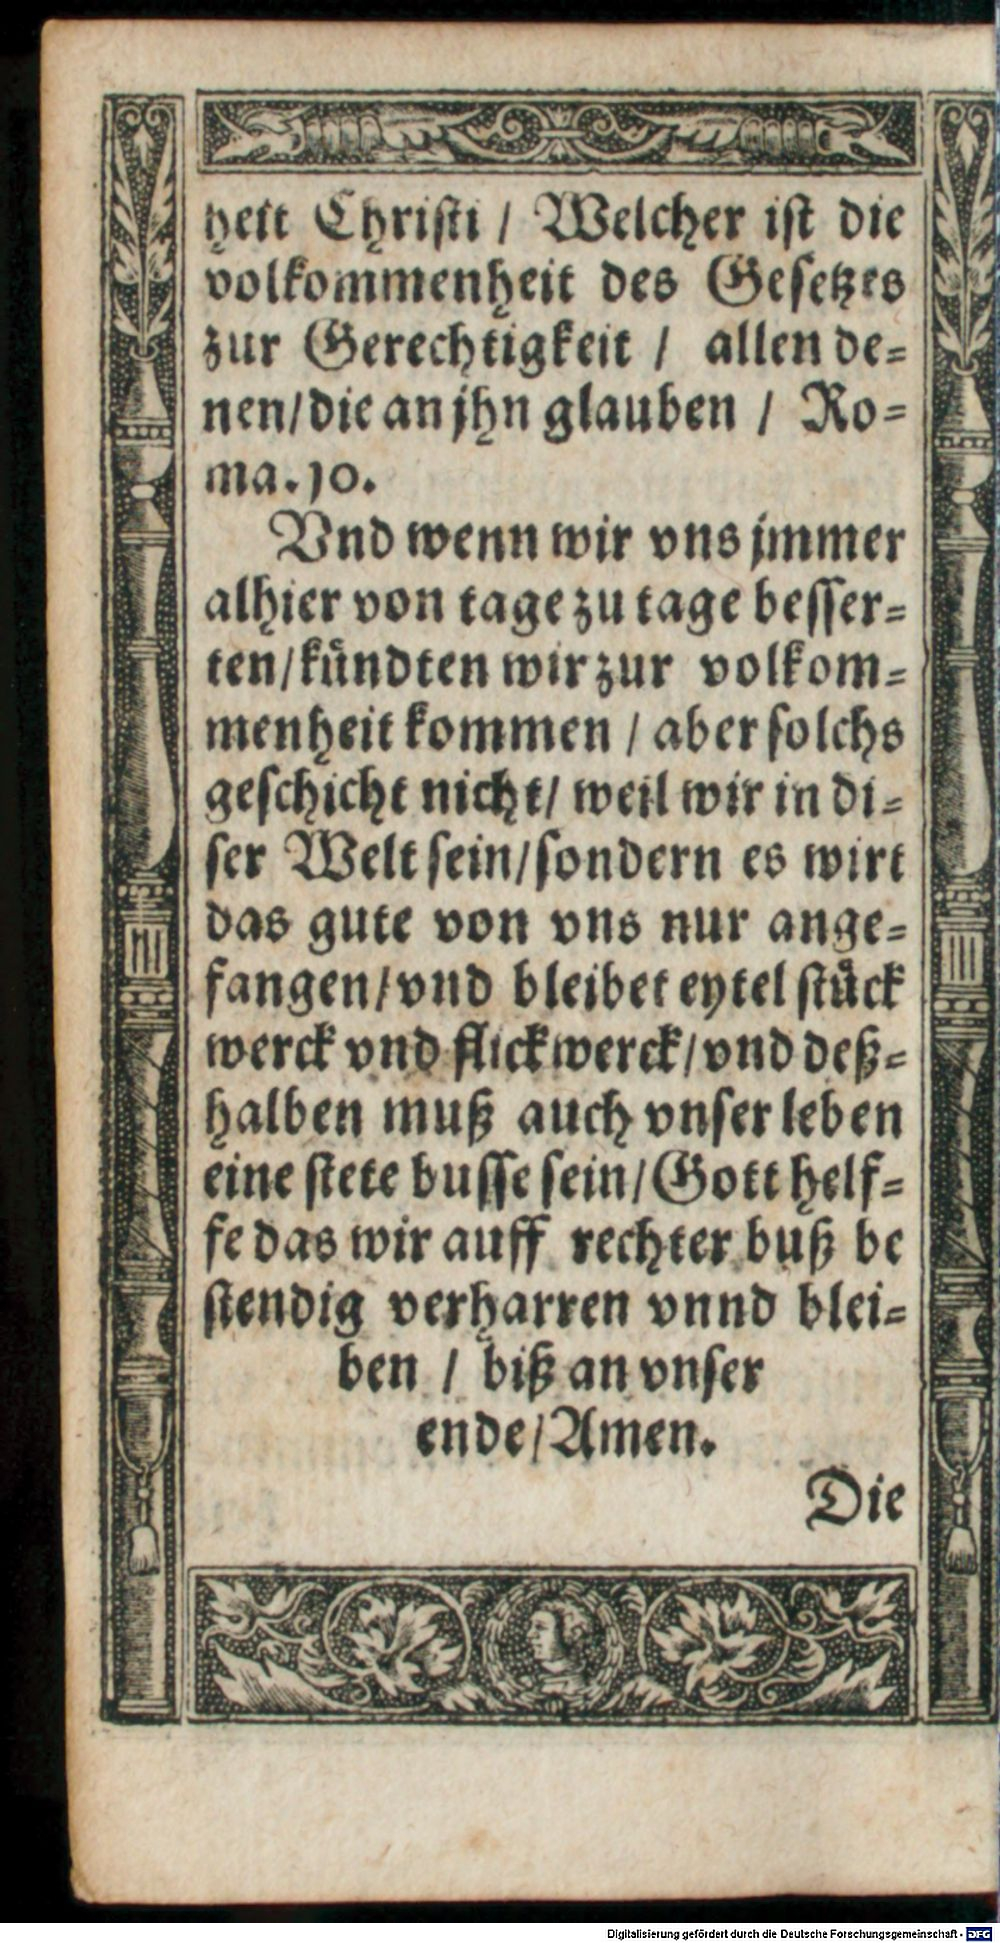 heit Christi / Welcher ist die
volkommenheit des Gesetzes
zur Gerechtigkeit / allen de=
nen/die an jhn glauben / Ro=
ma. 10.
Vnd wenn wir vns jmmer
alhier von tage zu tage besser=
ten/kündten wir zur volkom=
menheit kommen / aber solchs
geschicht nicht/ weil wir in di=
ser Welt sein/sondern es wirt
das gute von vns nur ange=
fangen/vnd bleibet eytel stück
werck vnd flickwerck/vnd deß=
halben muß auch vnser leben
eine stete busse sein/Gott helf=
fe das wir auff rechter buß be
stendig verharren vnnd blei=
ben / biß an vnser
ende/Amen.
Die
Digitalisierung gefördert durch die Deutsche Forschungsgemeinschaft - DFG